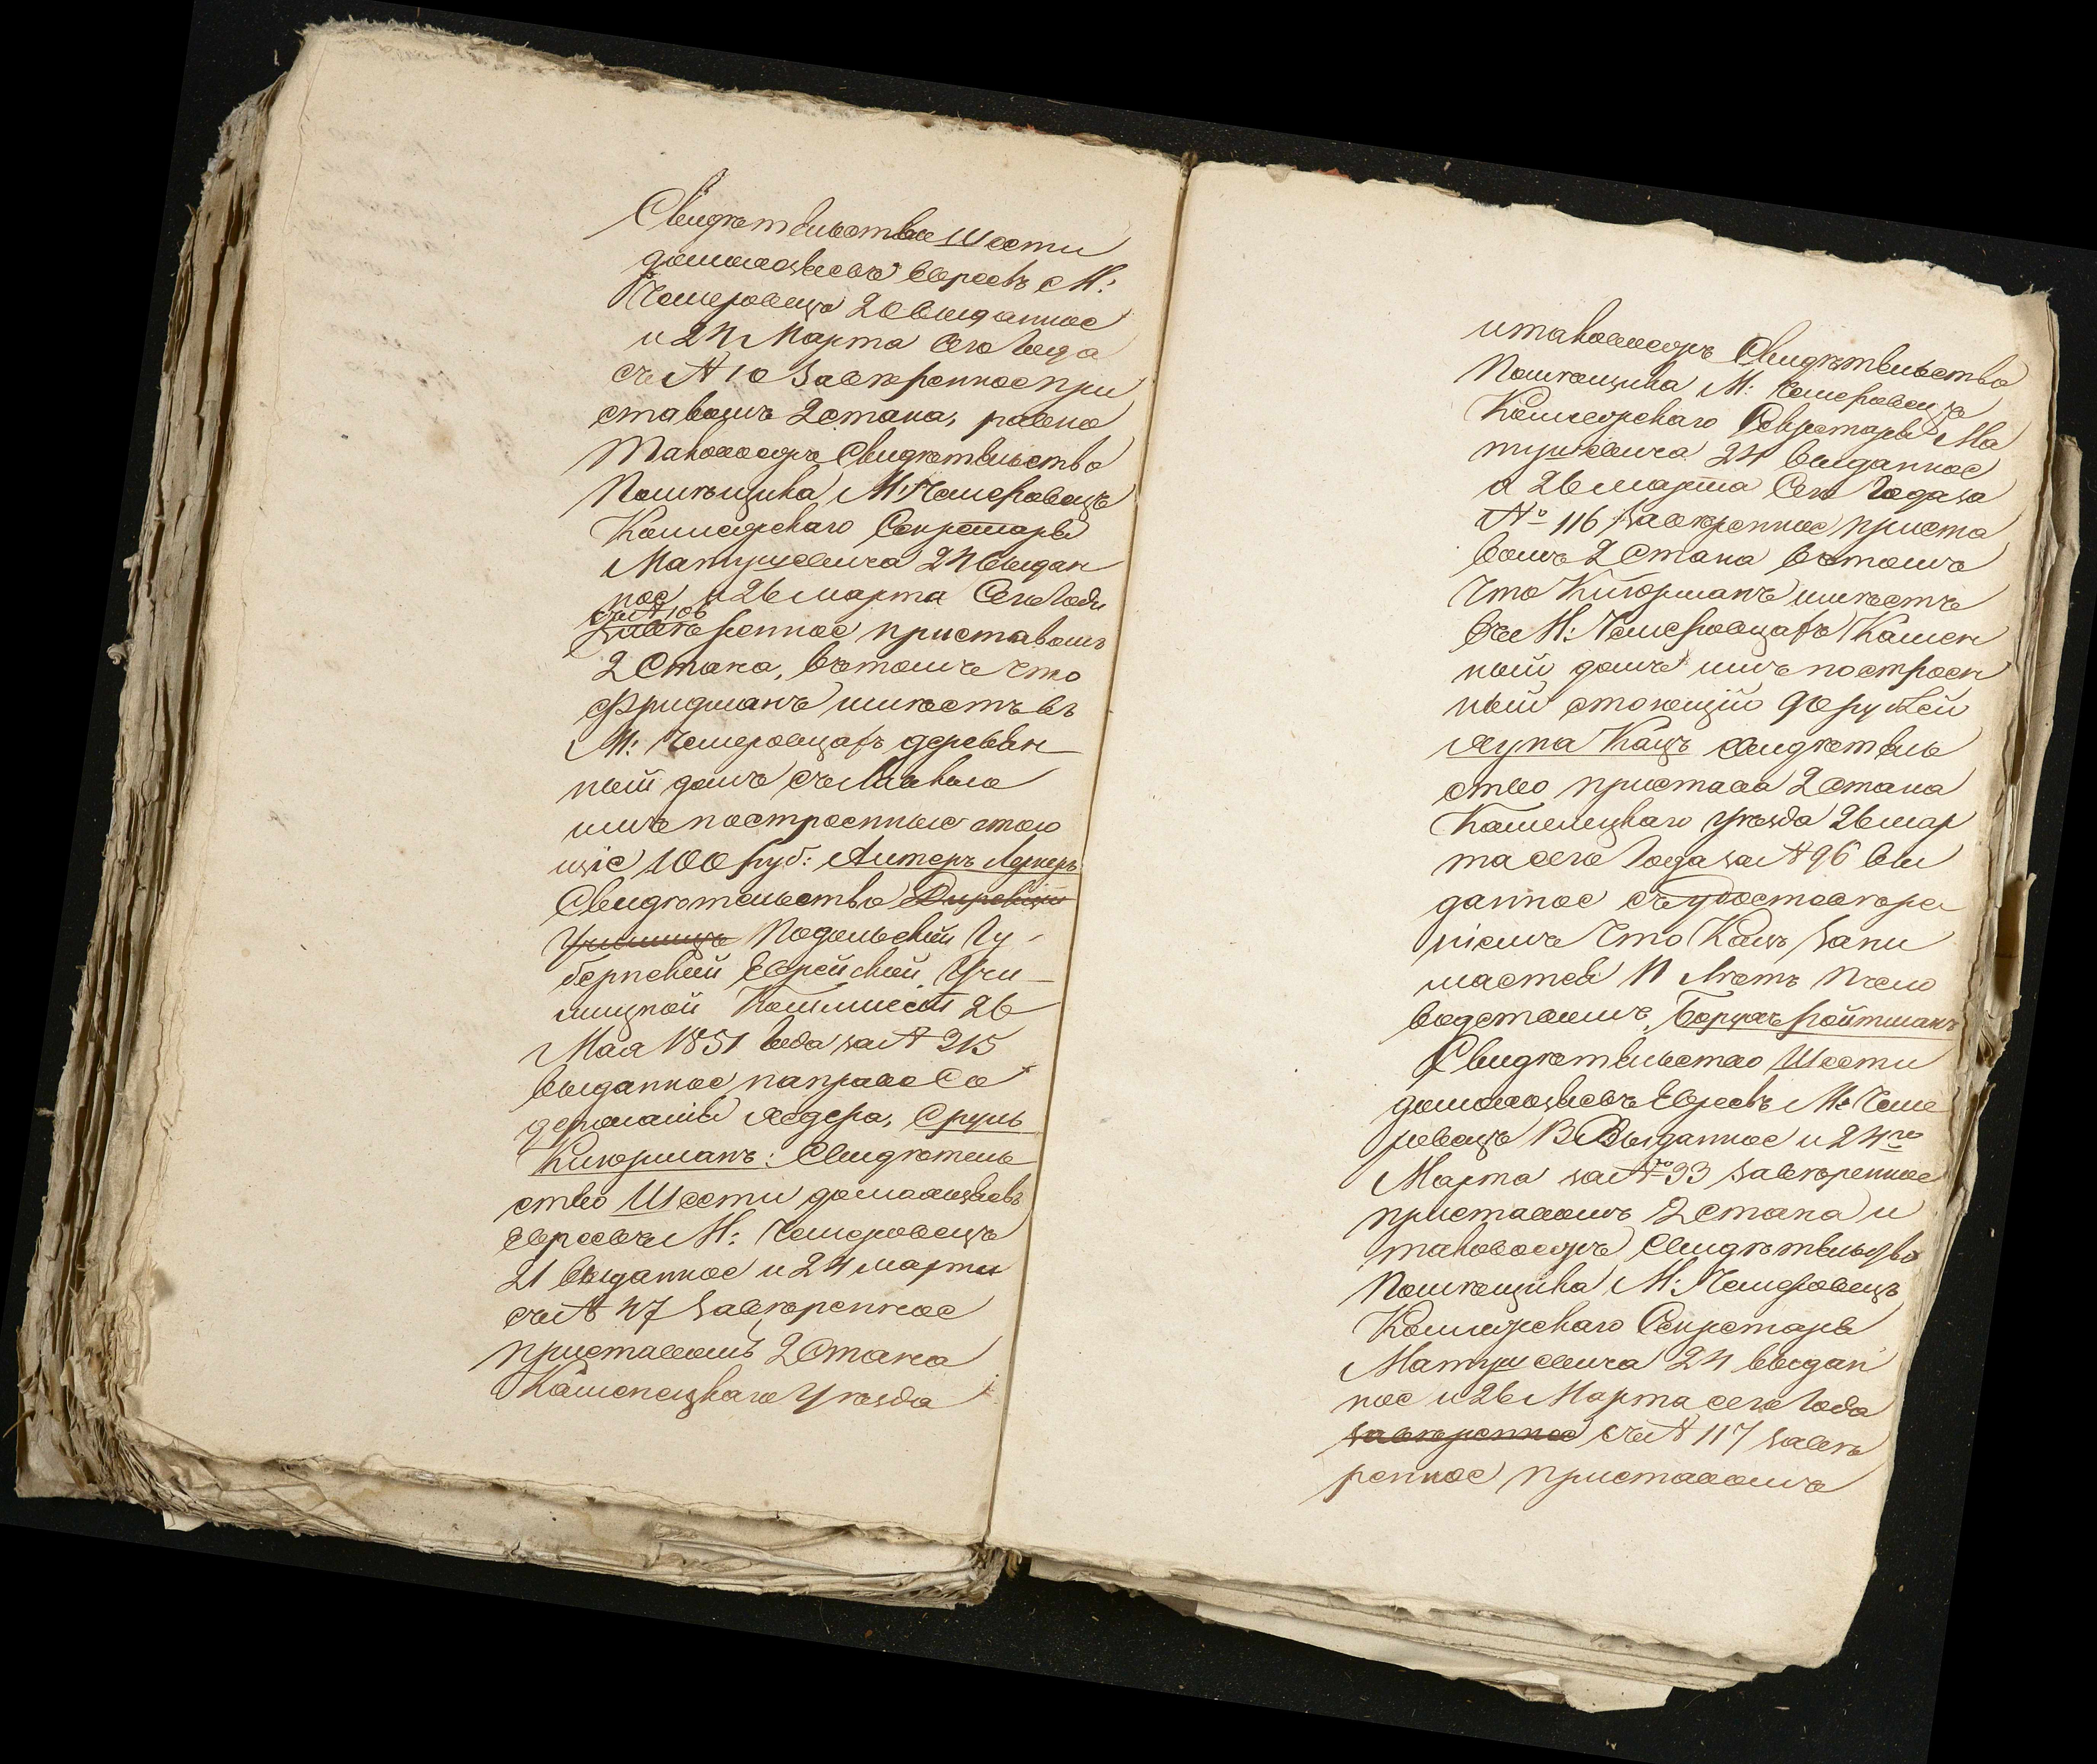 Свидѣтельство Шести
домохозяевъ Евреевъ М:
Чемеровецъ 20 выданное
и 24 Марта сего Года
съ № 10 завѣренное при
ставомъ 2 стана, равно
Таковоеже Свидѣтельство
Помѣщика М: Чемеровецъ
Колежскаго Секретаря
Матушевича 24 выдан
ное и 26 марта Сего Года
съ № 106
завѣренное приставомъ
2 Стана, въ томъ что
Фридманъ имѣетъ въ
М: Чемеровцахъ деревян
ный домъ съ Лавкою
имъ построенные стою
щіе 100 руб: Антеръ Лернеръ
Свидѣтельство Дирекціи
Училищъ Подольской Гу-
бернской Еврейской Учи-
лищной Коммисіи 26
Мая 1851 Года за № 215
выданное на право Со
держанія хедера, Сруль
Клигерманъ: Свидѣтель
ство Шести домохозяевъ
Евреевъ М: Чемеровецъ
21 выданное и 24 марта
съ № 47 завѣренное
приставомъ 2 Стана
Каменецкаго Уѣзда
и таковоежъ Свидѣтельство
Помѣщика М: Чемеровецъ
Колежскаго Секретаря Ма
тушевича 24 выданное
а 26 марта Сего Года за
№ 116 завѣренное приста
вомъ 2 Стана въ томъ
что Клигерманъ имѣетъ
въ М: Чемеровцахъ Камен
ный домъ имъ построен
ный стоющій 90 рублей
Хуна Кацъ свидѣтель
ство пристава 2 стана
Каменецкаго уѣзда 26 мар
та сего Года за № 96 вы
данное съ удостовѣре
ніемъ что Кацъ зани
мается 11 лѣтъ пчело
водствомъ, Борухъ Ройтманъ
Свидѣтельство Шести
домохозяевъ Евреевъ М: Чеме
ровецъ 13 Выданное и 24го
Марта за № 33 завѣренное
приставомъ 2 стана и
таковоежъ Свидѣтельство
Помѣщика М: Чемеровецъ
Колежскаго Секретаря
Матушевича 24 выдан
ное и 26 Марта сего Года
завѣренное съ № 117 завѣ
ренное приставомъ